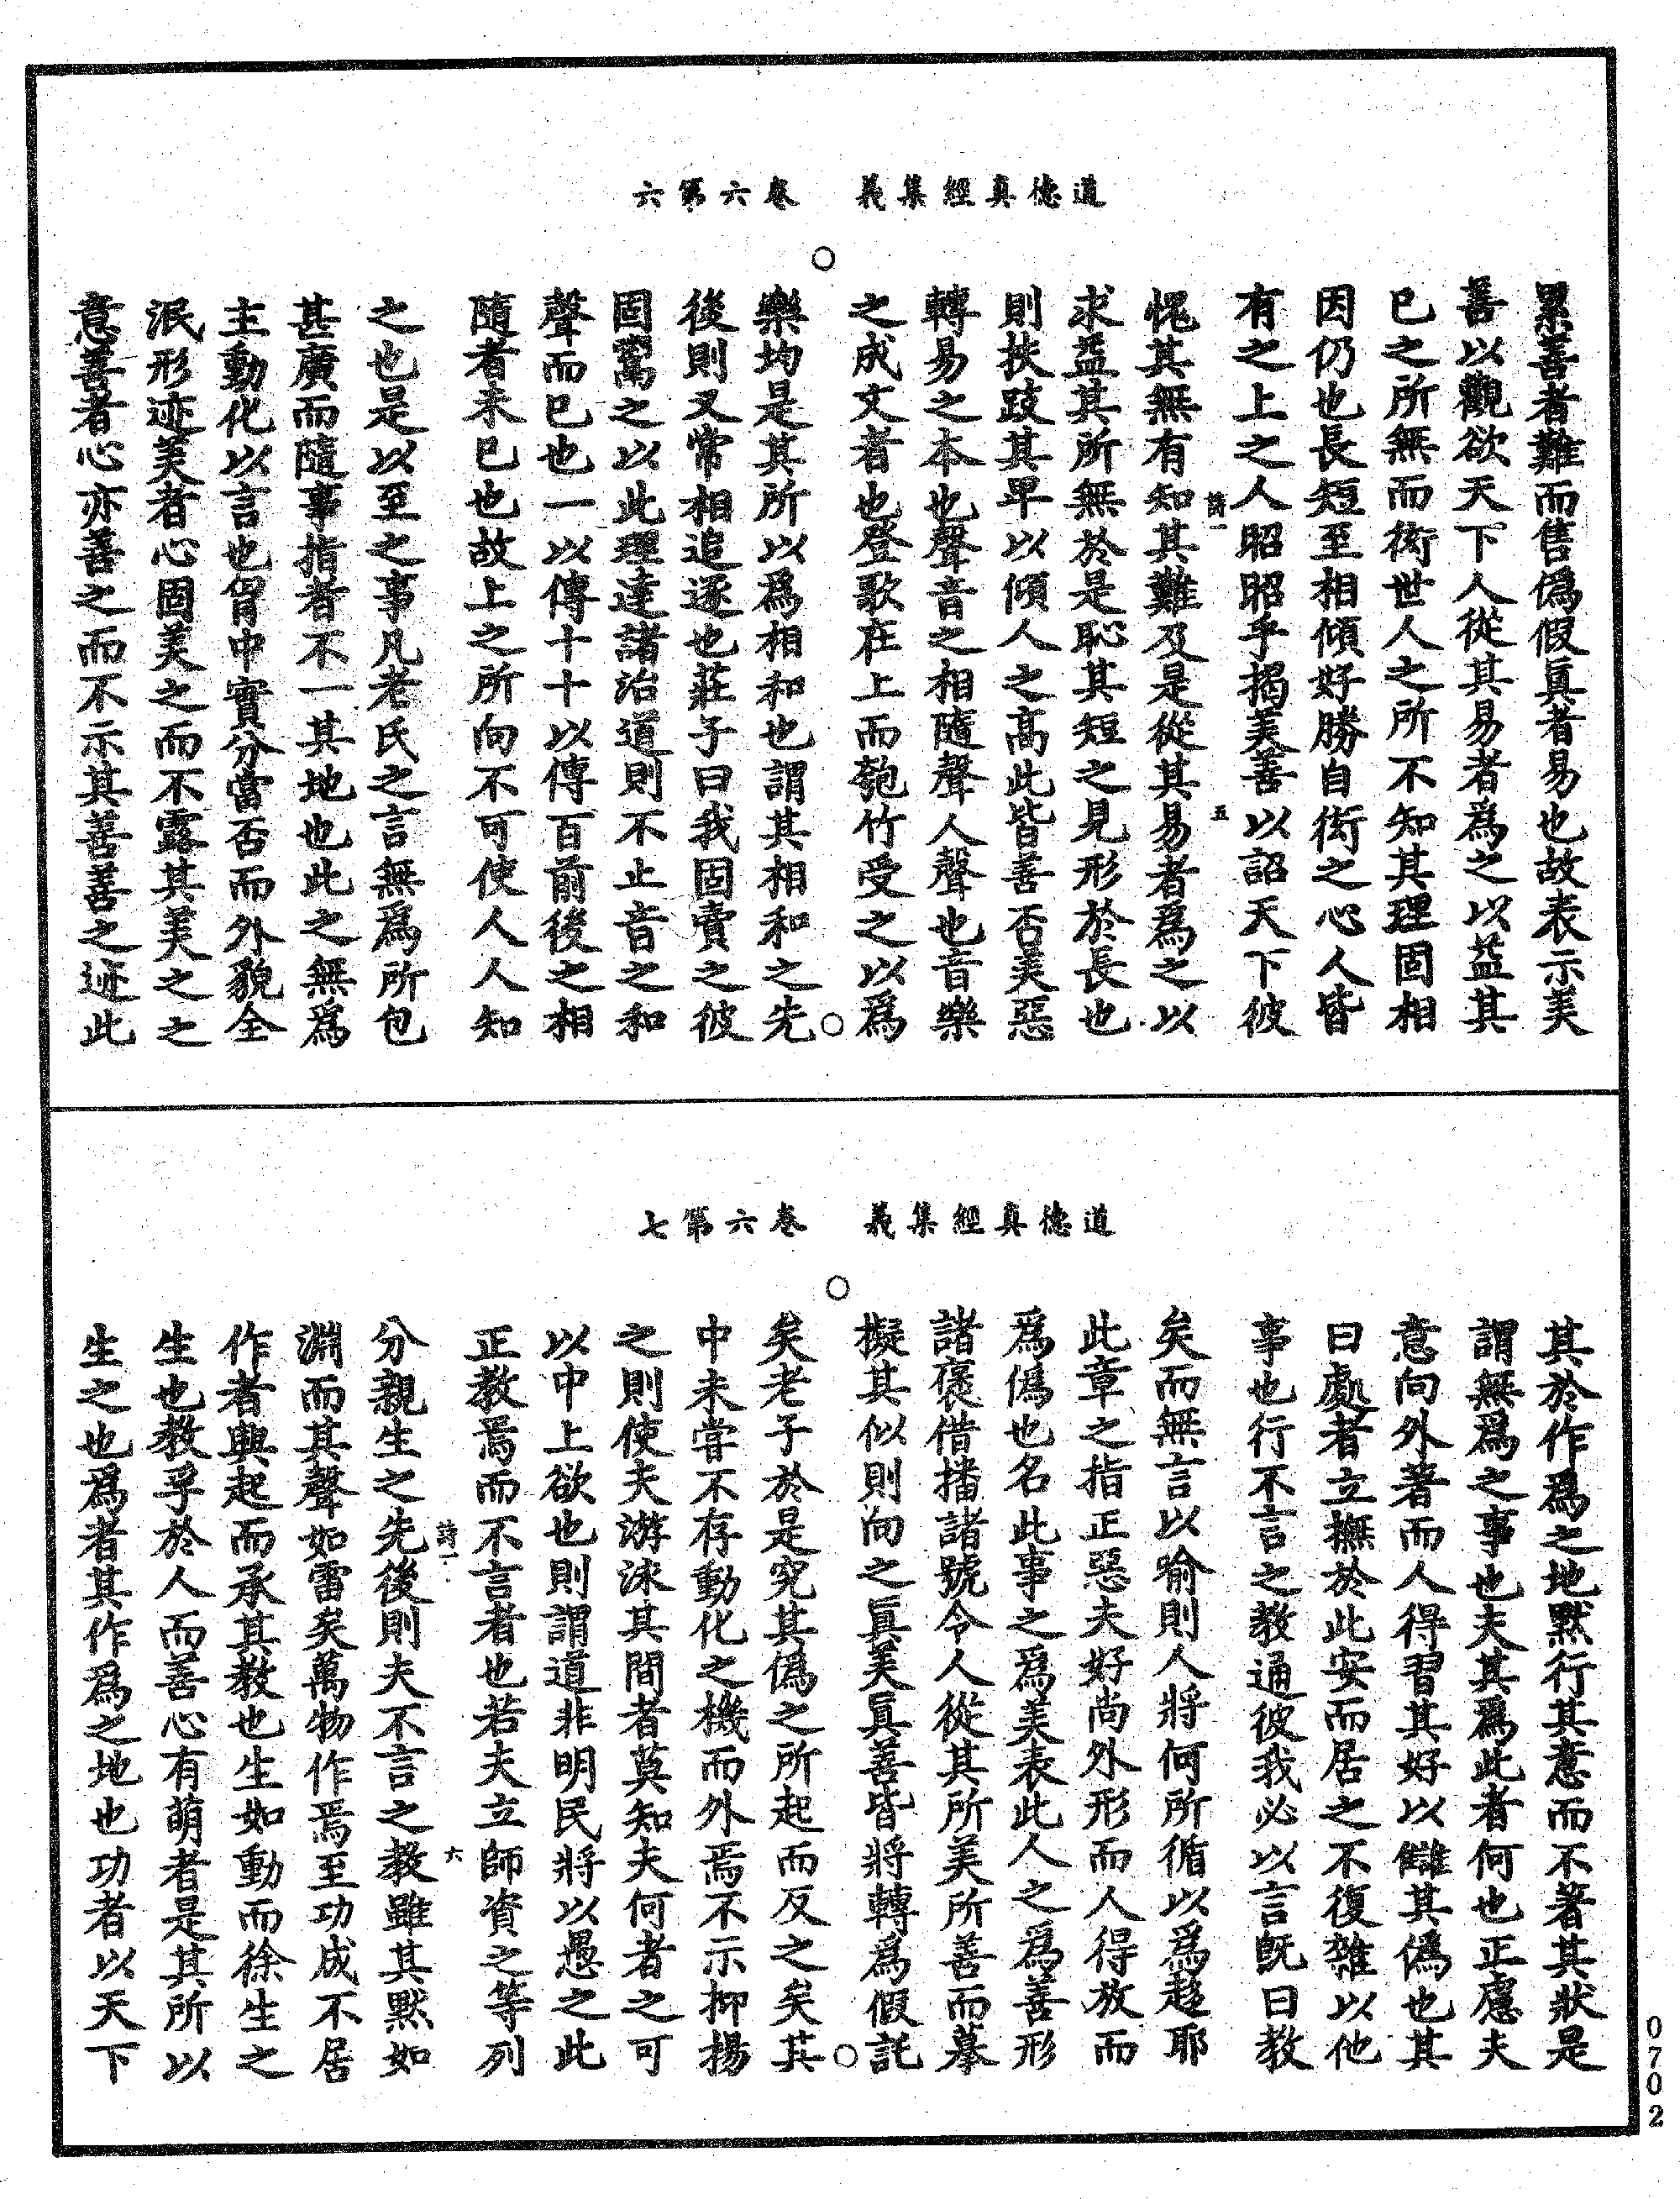 道德眞經集義　卷六第六
累善者難而售僞假眞者易也故表示美
善以觀欲天下人從其易者爲之以益其
已之所無而衒世人之所不知其理固相
因仍也長短至相傾好勝自衒之心人皆
有之上之人昭昭乎揭美善以詔天下彼
詩一　五
愧其無有知其難及是從其易者爲之以
求益其所無於是恥其短之見形於長也
則扶跂其早以傾人之高此皆善否美惡
轉易之本也聲音之相隨聲人聲也音樂
之成文者也登歌在上而匏竹受之以爲
樂均是其所以爲相和也謂其相和之先
後則又常相追逐也莊子曰我固賣之彼
固鬻之以此理達諸治道則不止音之和
聲而已也一以傳十十以傳百前後之相
隨者未已也故上之所向不可使人人知
之也是以至之事凡老氏之言無爲所包
甚廣而隨事指者不一其地也此之無爲
主動化以言也胷中實分當否而外貌全
泯形迹美者心固美之而不露其美之之
意善者心亦善之而不示其善善之迹此
道德眞經集義　卷六第七
其於作爲之地默行其意而不著其狀是
謂無爲之事也夫其爲此者何也正慮夫
意向外著而人得習其好以讎其僞也其
曰處者立撫於此安而居之不復雜以他
事也行不言之教通彼我必以言旣曰教
矣而無言以喻則人將何所循以爲趍耶
此章之指正惡夫好尚外形而人得放而
爲僞也名此事之爲美表此人之爲善形
諸褒借播諸號令人從其所美所善而摹
擬其似則向之眞美眞善皆將轉爲假託
矣老子於是究其僞之所起而反之矣其
中未嘗不存動化之機而外焉不示抑揚
之則使夫游泳其間者莫知夫何者之可
以中上欲也則謂道非明民將以愚之此
正教焉而不言者也若夫立師資之等列
詩一　六
分親生之先後則夫不言之教雖其默如
淵而其聲如雷矣萬物作焉至功成不居
作者興起而承其教也生如動而徐生之
生也教孚於人而善心有萌者是其所以
生之也爲者其作爲之地也功者以天下
0702